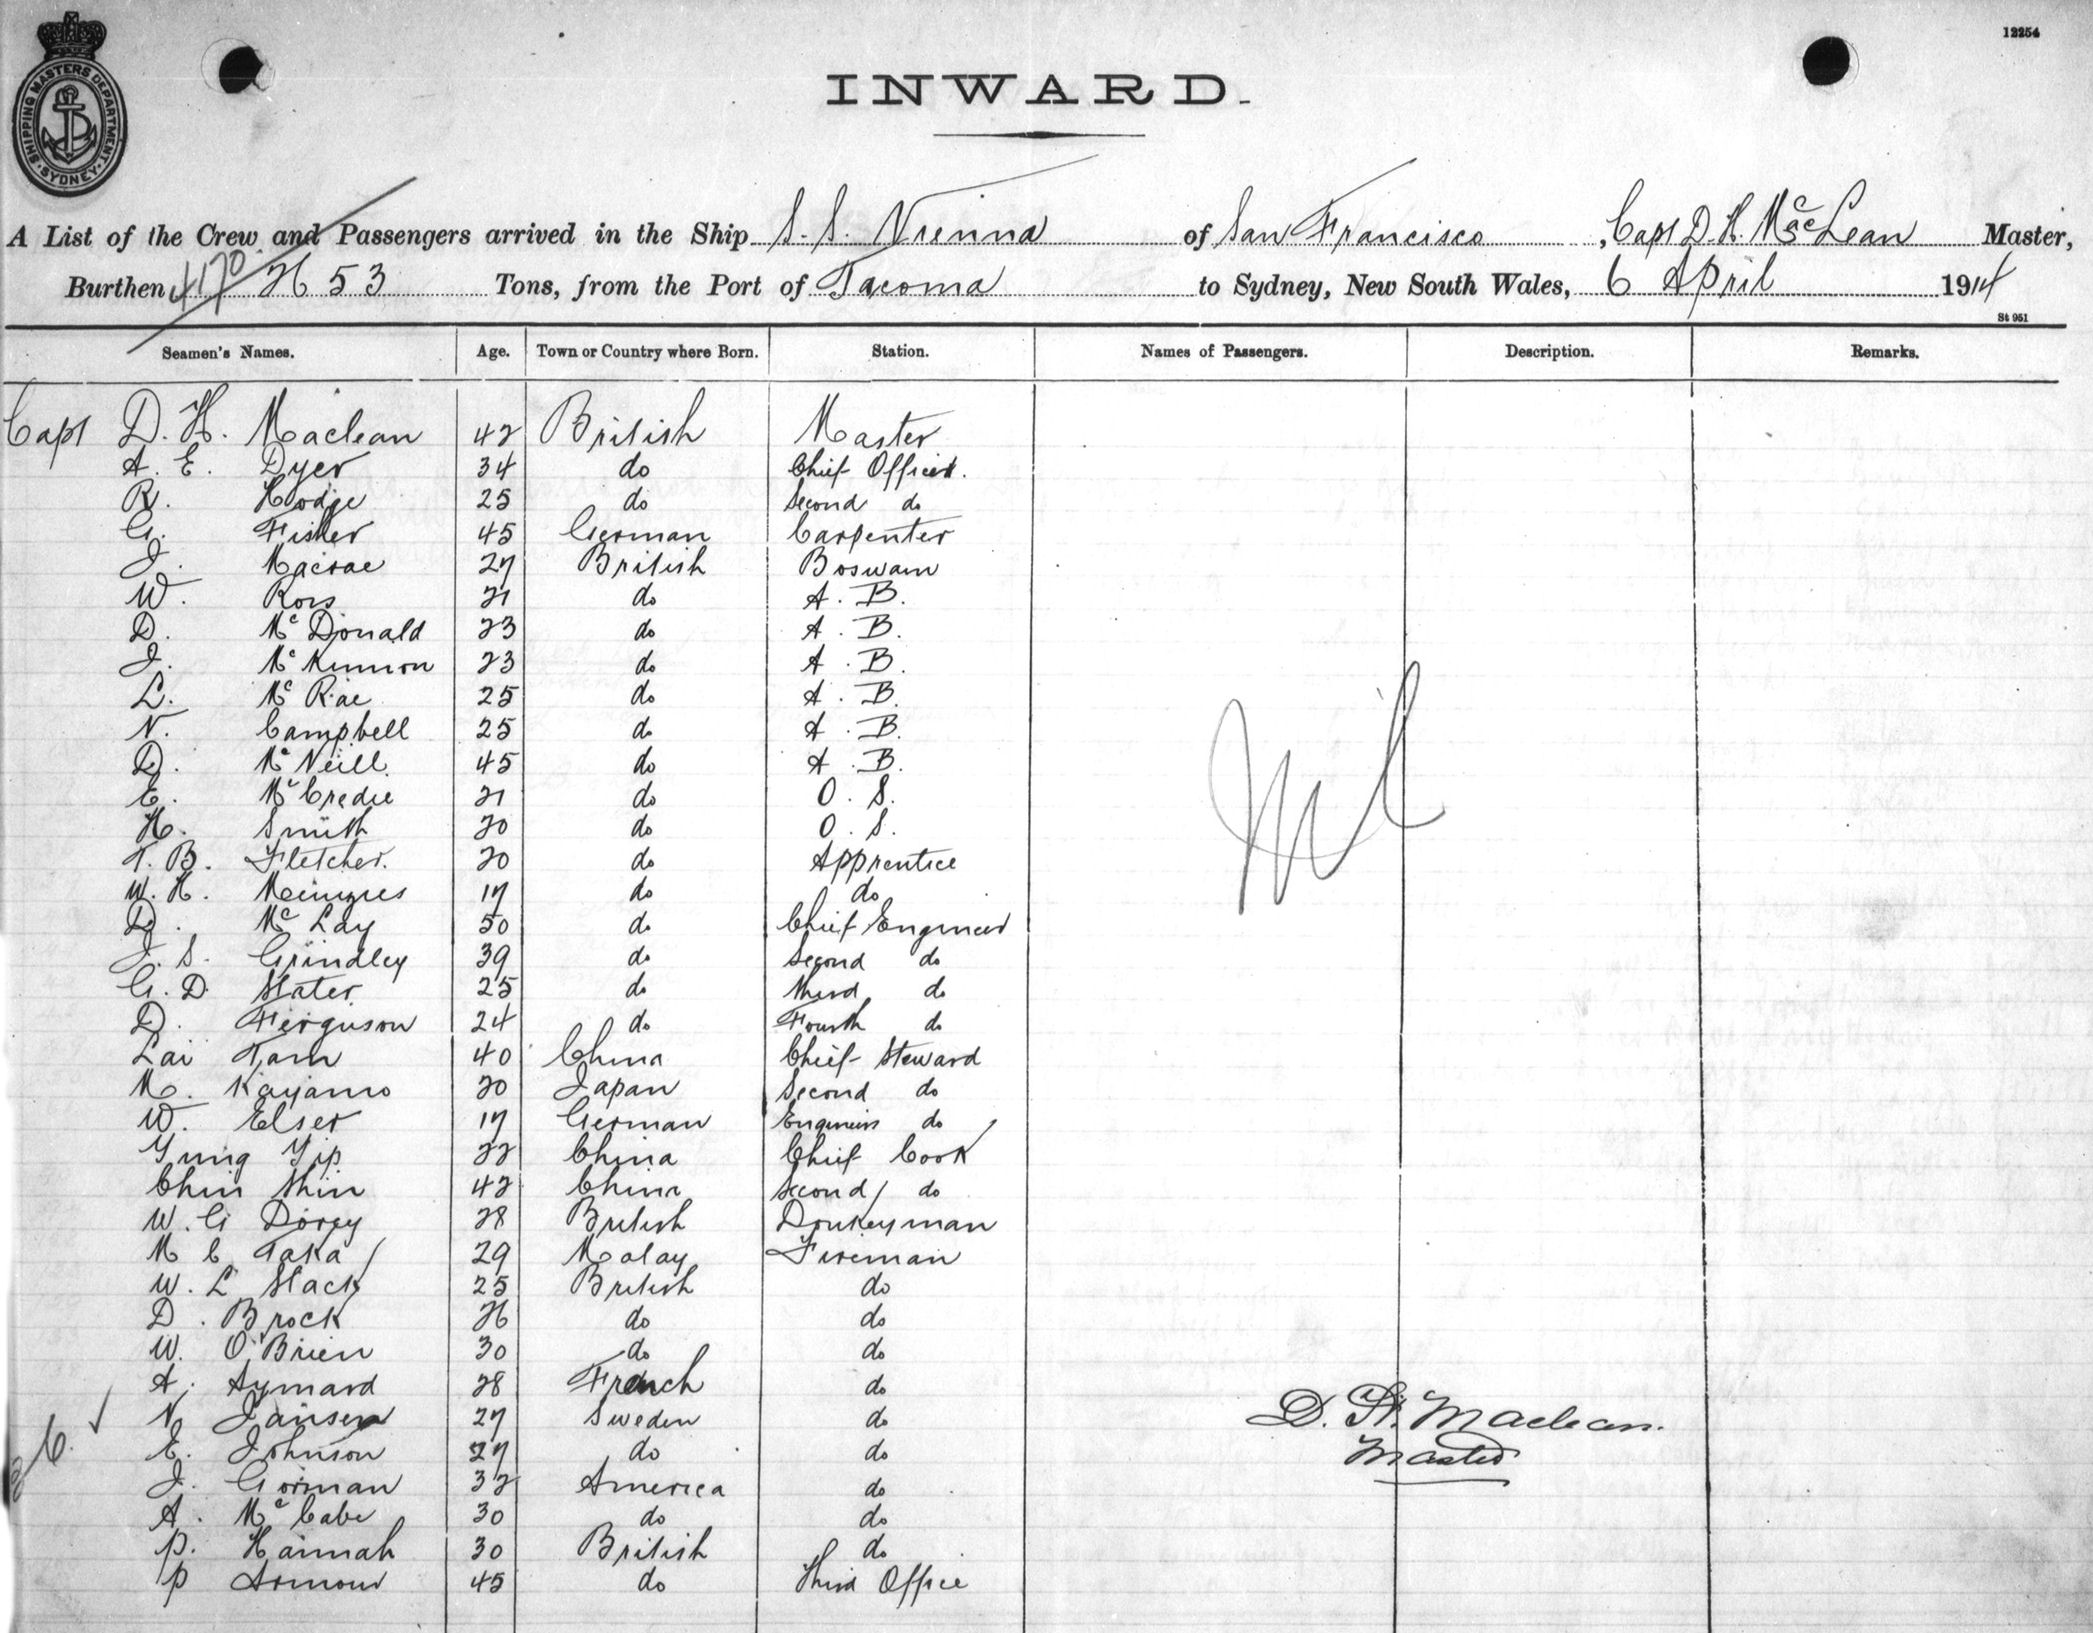 12254
SHIPPING MASTERS DEPARTMENT SYDNEY
INWARD.
A List of the Crew and Passengers arrived in the Ship S.S. Vienna of San Francisco, Capt D. H. McLean Master,
Burthen 4170 Tons, from the Port of Tacoma to Sydney, New South Wales, 6 April 1914
St 951
Seamen's Names. Age. Town or Country where Born. Station. Names of Passengers. Description. Remarks.
Capt D. H. Maclean 42 British Master
A. E. Dyer 34 do Chief Officer.
R. Hodge 25 do Second do
G. Fisher 45 German Carpenter
J. Macrae 27 British Boswain
W. Ross 21 do A. B.
D. McDonald 23 do A. B.
J. McKinnon 23 do A. B.
L. McRae 25 do A. B.
N. Campbell 25 do A. B.
D. McNeill 45 do A. B.
E. McCredie 21 do O. S.
H. Smith 20 do O. S.
T. B. Fletcher. 20 do Apprentice
W. H. Menzies 17 do do
D. McLay 50 do Chief Engineer
J. S. Grindley 39 do Second do
G. D. Slater 25 do Third do
D. Ferguson 24 do Fourth do
Lai Tam 40 China Chief Steward
M. Kayamo 20 Japan Second do
W. Elser 17 German Engineers do
Yung Yip 22 China Chief Cook
Chin Shin 42 China Second do
W. G Dorey 28 British Donkeyman
M C Taka 29 Malay Fireman
W. L Slack 25 British do
D. Brock 26 do do
W. O'Brien 30 do do
A. Aymard 28 French do
N Jansen 27 Sweden do
E. Johnson 27 do do
J. Gorman 32 America do
A. McCabe 30 do do
P. Hannah 30 British do
P Armour 45 do Third Office
Nil
D. H. Maclean.
Master